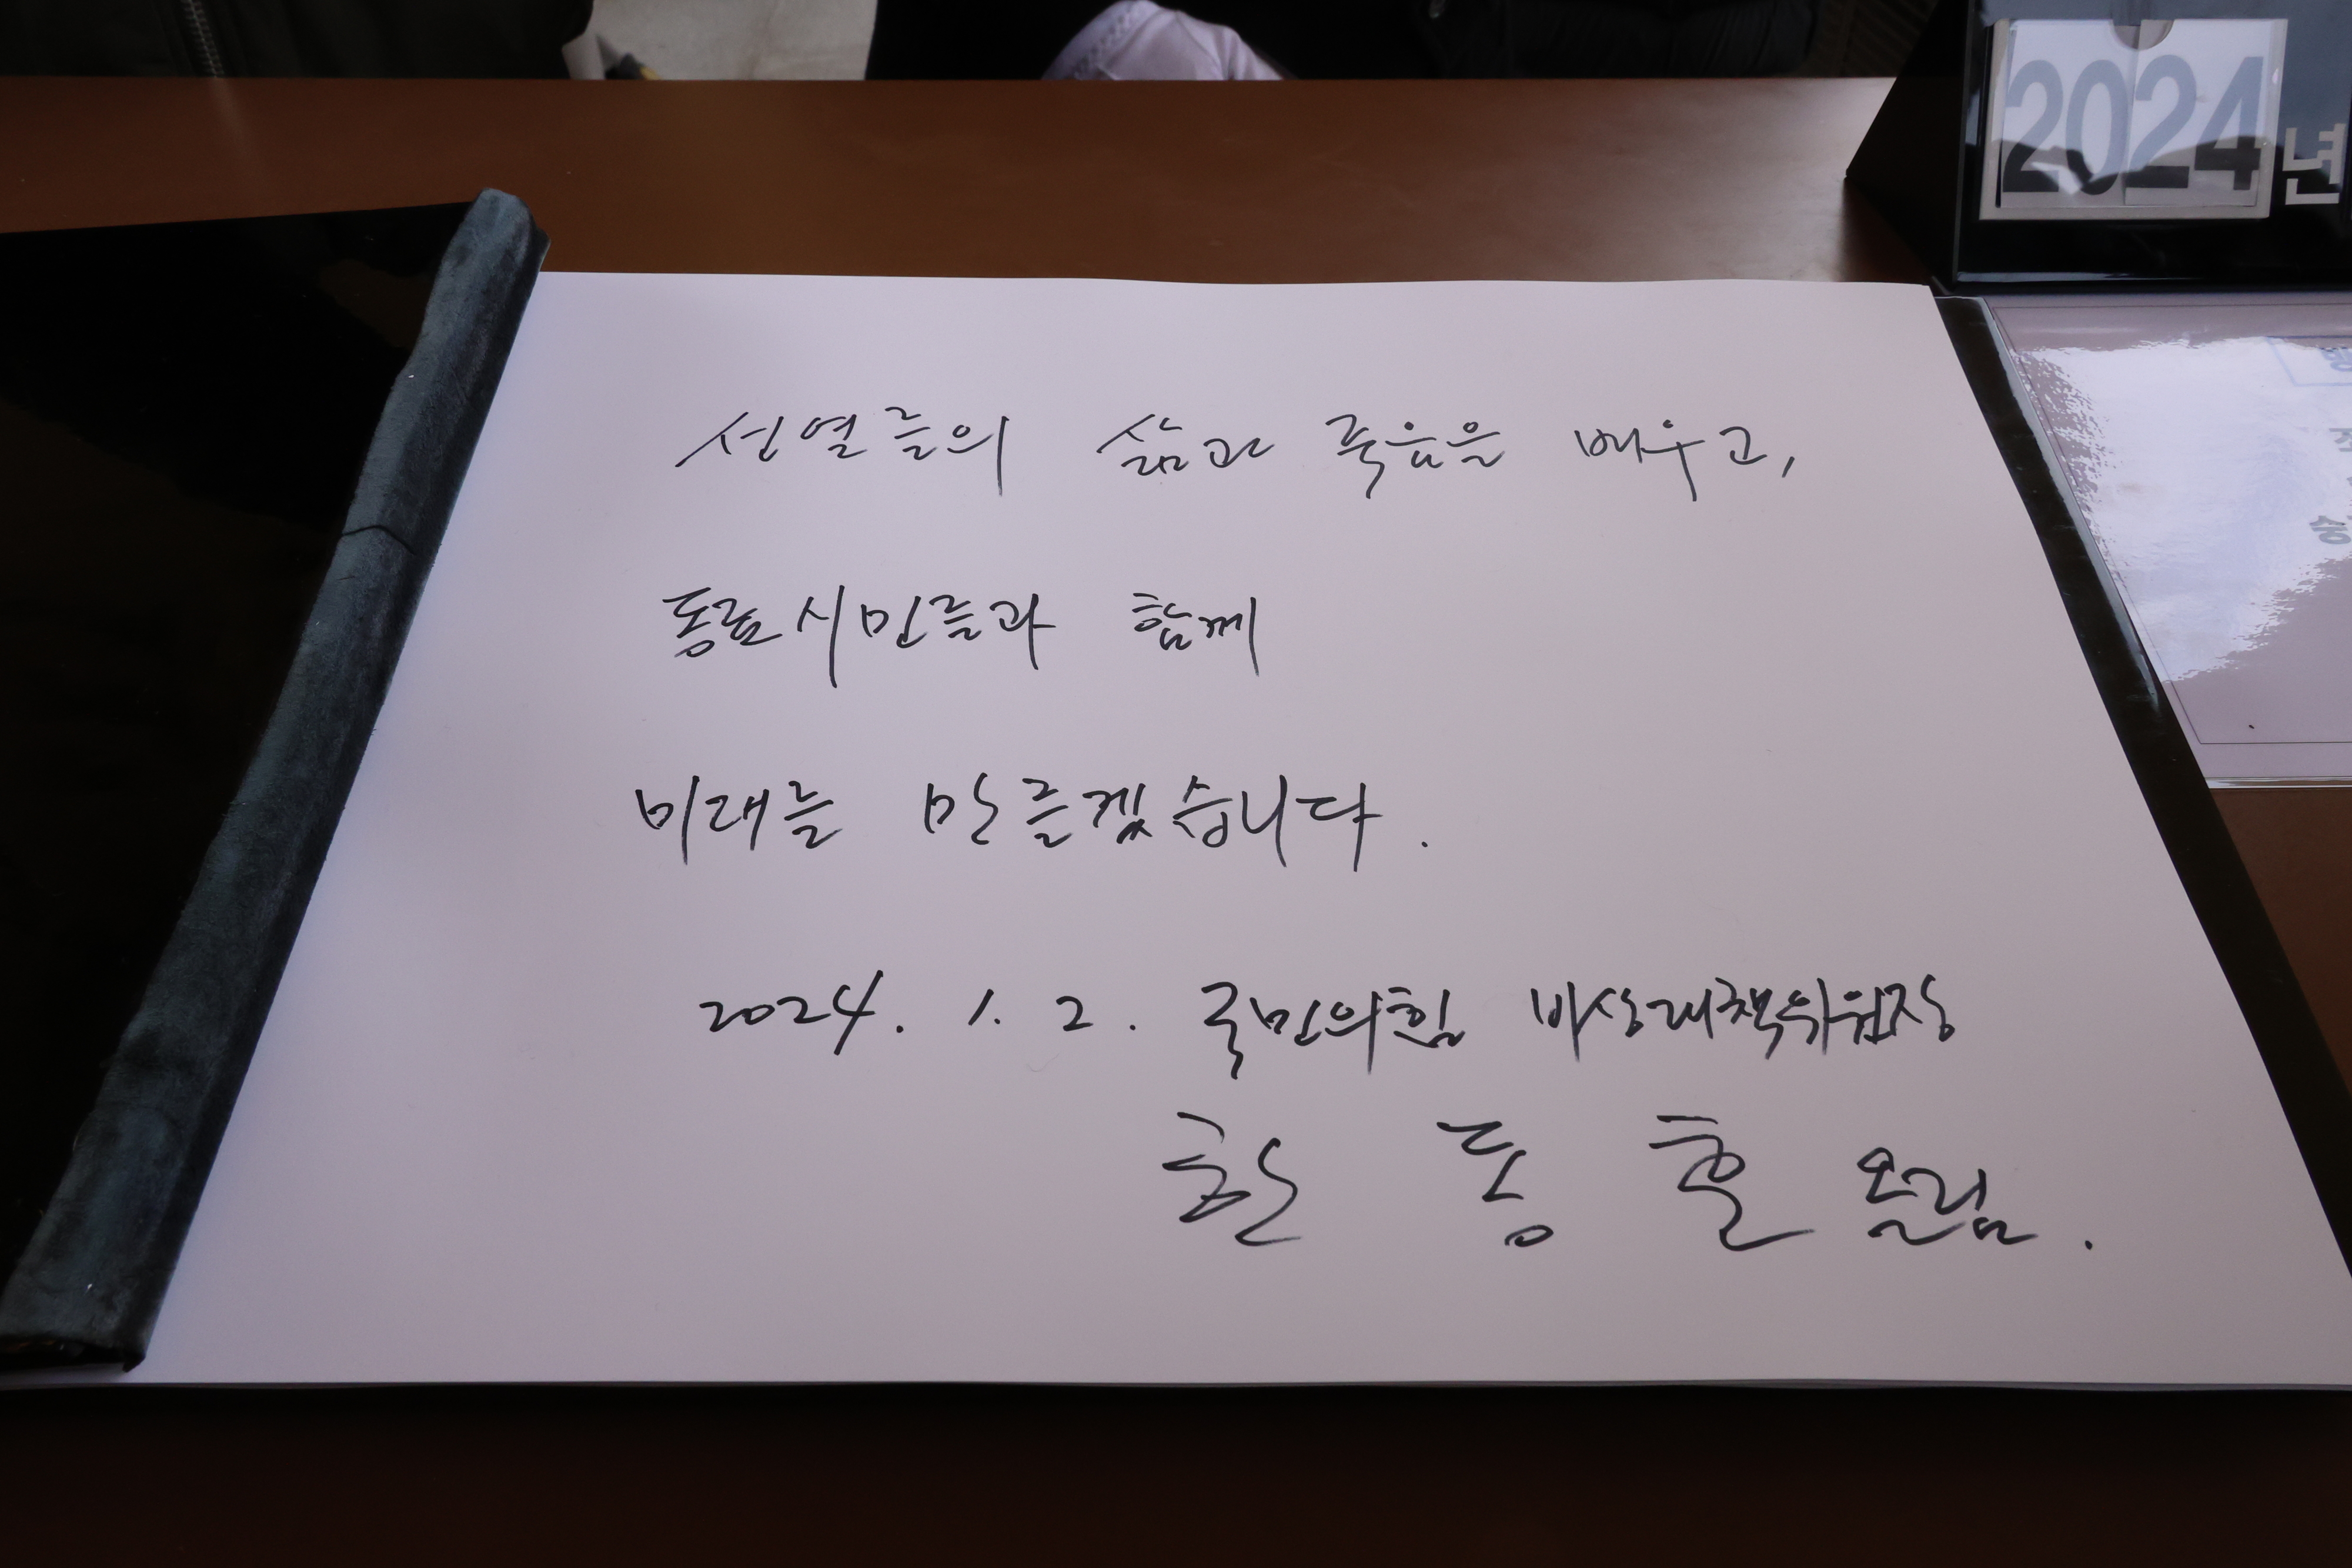 2024년
선열들의 삶과 죽음을 배우고,
동료시민들과 함께
미래를 만들겠습니다.
2024. 1. 2. 국민의힘 비상대책위원장
한 동 훈 올림.